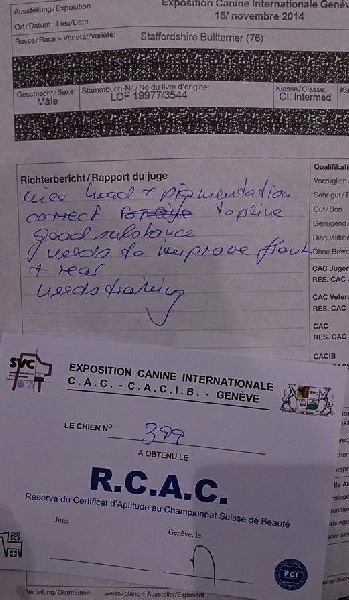 Ausstellung/Exposition
Exposition Canine Internationale Genève
Ort/Datum Lieu/Date
15/ novembre 2014
Rasse/Race - Varietät/Variété:
Staffordshire Bullterrier (76)
Geschlecht/Sexe:
Mâle
Stammbuch-Nr./No du livre d'origine:
LOF 19977/3544
Klasse/Classe:
Cl: Intermed
Richterbericht/Rapport du juge
nice head + pigmendation
correct topline
good substance
needs to improve front
+ rear
needs training
Qualifikati
Vorzüglich
Sehr gut/T
Gut/Bon
Genügend
Disqualifi
Ohne Bewe
CAC Jugen
RES. CAC
CAC Vetera
RES. CAC
CAC
RES. CAC
CACIB
EXPOSITION CANINE INTERNATIONALE
C.A.C. - C.A.C.I.B. - GENÈVE
LE CHIEN N° 399
A OBTENU LE
R.C.A.C.
Réserve du Certificat d'Aptitude au Championnat Suisse de Beauté
Juge
Genève, le
FCI
Verteilung/Distribution: weiss/blanc = Aussteller/Exposant